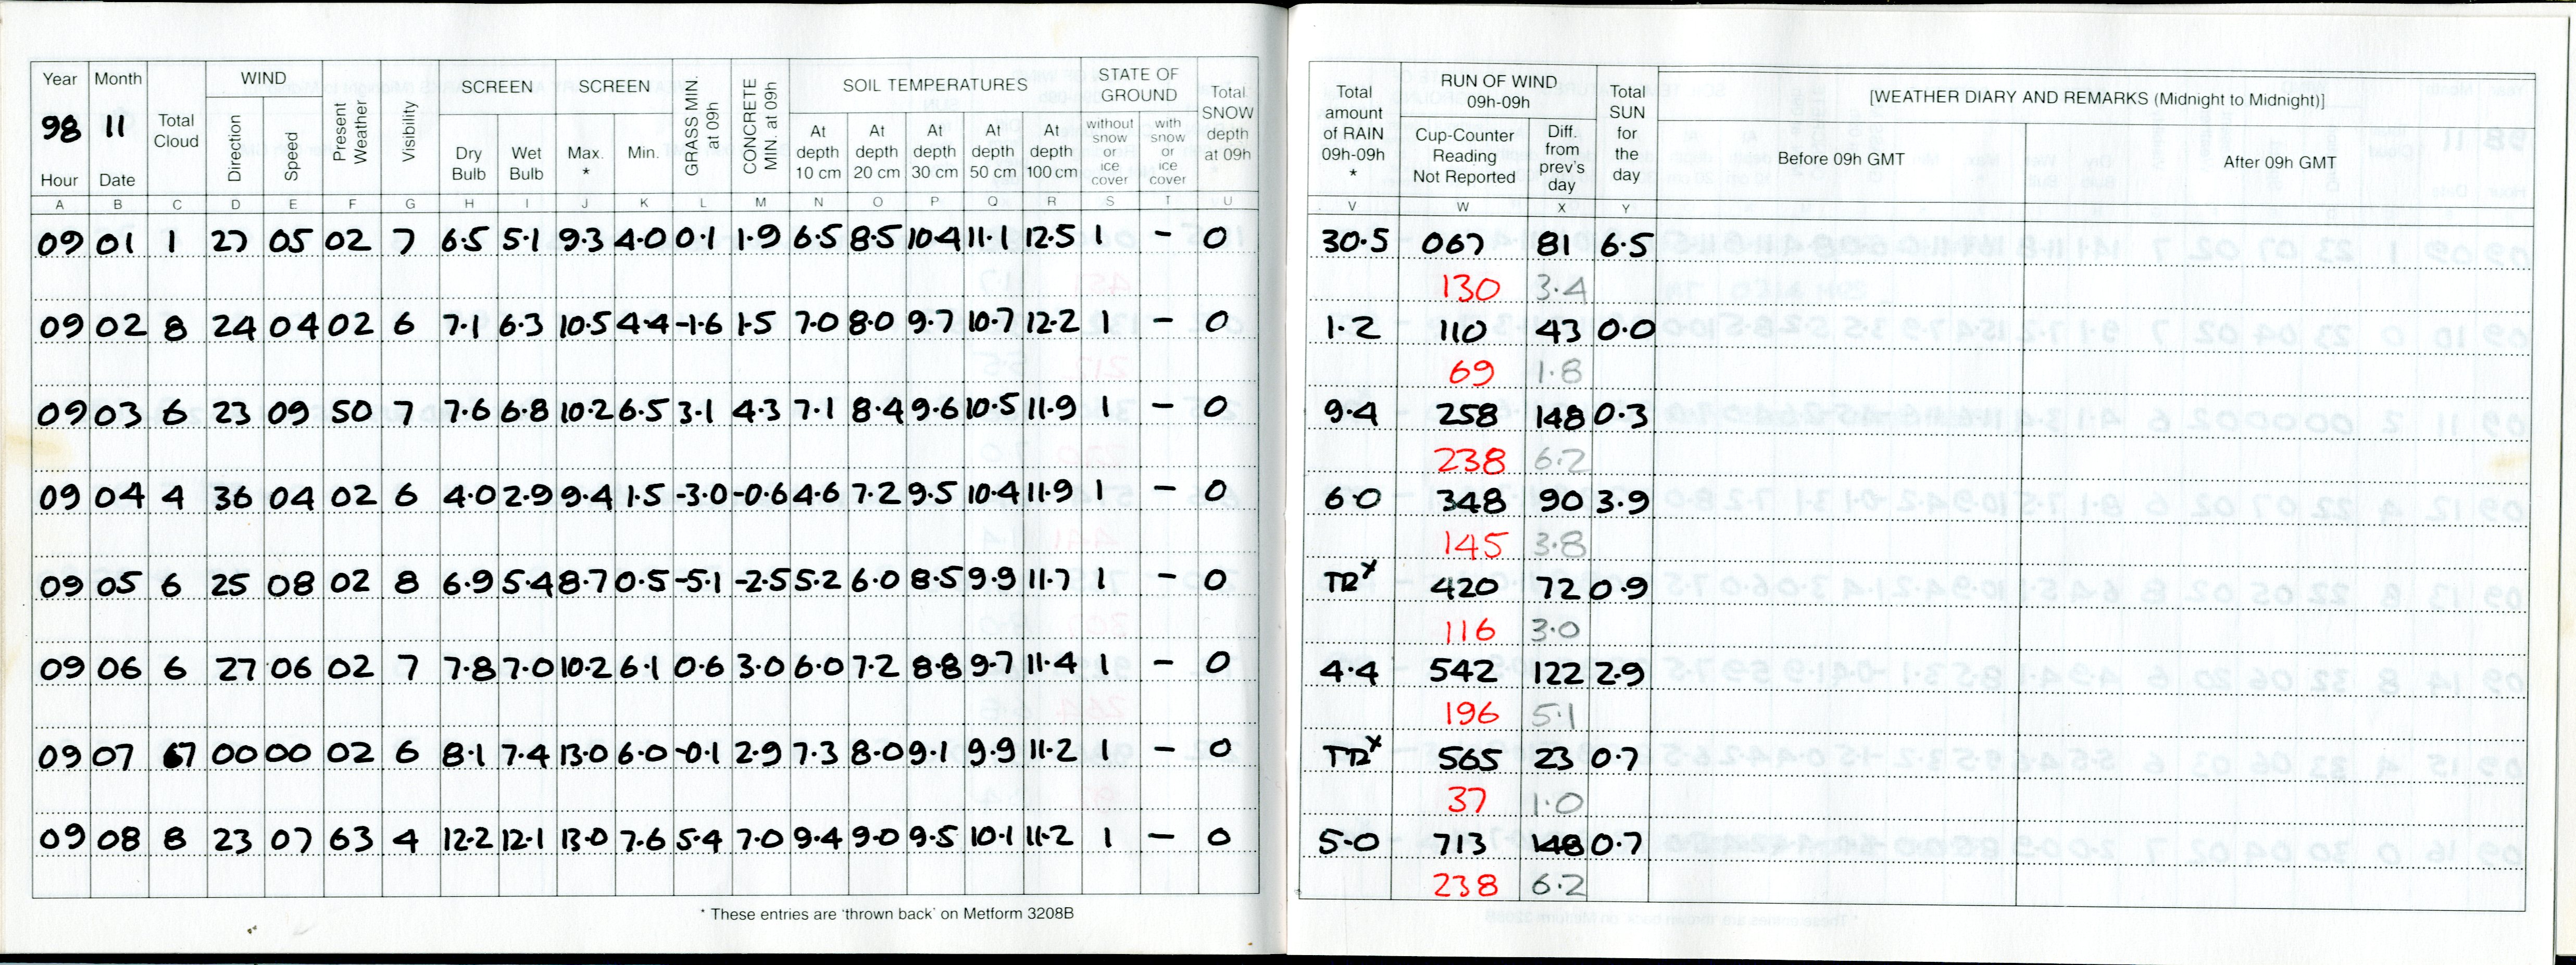 Year Month WIND SCREEN SCREEN GRASS MIN. at 09h CONCRETE MIN. at 09h SOIL TEMPERATURES STATE OF GROUND Total SNOW depth at 09h
98 11 Total Cloud Direction Speed Present Weather Visibility Dry Bulb Wet Bulb Max. * Min. At depth 10 cm At depth 20 cm At depth 30 cm At depth 50 cm At depth 100 cm without snow or ice cover with snow or ice cover
Hour Date
A B C D E F G H I J K L M N O P Q R S T U
09 01 1 27 05 02 7 6.5 5.1 9.3 4.0 0.1 1.9 6.5 8.5 10.4 11.1 12.5 1 – 0
09 02 8 24 04 02 6 7.1 6.3 10.5 4.4 -1.6 1.5 7.0 8.0 9.7 10.7 12.2 1 – 0
09 03 6 23 09 50 7 7.6 6.8 10.2 6.5 3.1 4.3 7.1 8.4 9.6 10.5 11.9 1 – 0
09 04 4 36 04 02 6 4.0 2.9 9.4 1.5 -3.0 -0.6 4.6 7.2 9.5 10.4 11.9 1 – 0
09 05 6 25 08 02 8 6.9 5.4 8.7 0.5 -5.1 -2.5 5.2 6.0 8.5 9.9 11.7 1 – 0
09 06 6 27 06 02 7 7.8 7.0 10.2 6.1 0.6 3.0 6.0 7.2 8.8 9.7 11.4 1 – 0
09 07 7 00 00 02 6 8.1 7.4 13.0 6.0 -0.1 2.9 7.3 8.0 9.1 9.9 11.2 1 – 0
09 08 8 23 07 63 4 12.2 12.1 13.0 7.6 5.4 7.0 9.4 9.0 9.5 10.1 11.2 1 – 0
* These entries are 'thrown back' on Metform 3208B
Total amount of RAIN 09h-09h * RUN OF WIND 09h-09h Total SUN for the day [WEATHER DIARY AND REMARKS (Midnight to Midnight)]
Cup-Counter Reading Not Reported Diff. from prev's day Before 09h GMT After 09h GMT
V W X Y
30.5 067 81 6.5
130 3.4
1.2 110 43 0.0
69 1.8
9.4 258 148 0.3
238 6.2
6.0 348 90 3.9
145 3.8
TR x 420 72 0.9
116 3.0
4.4 542 122 2.9
196 5.1
TR x 565 23 0.7
37 1.0
5.0 713 148 0.7
238 6.2